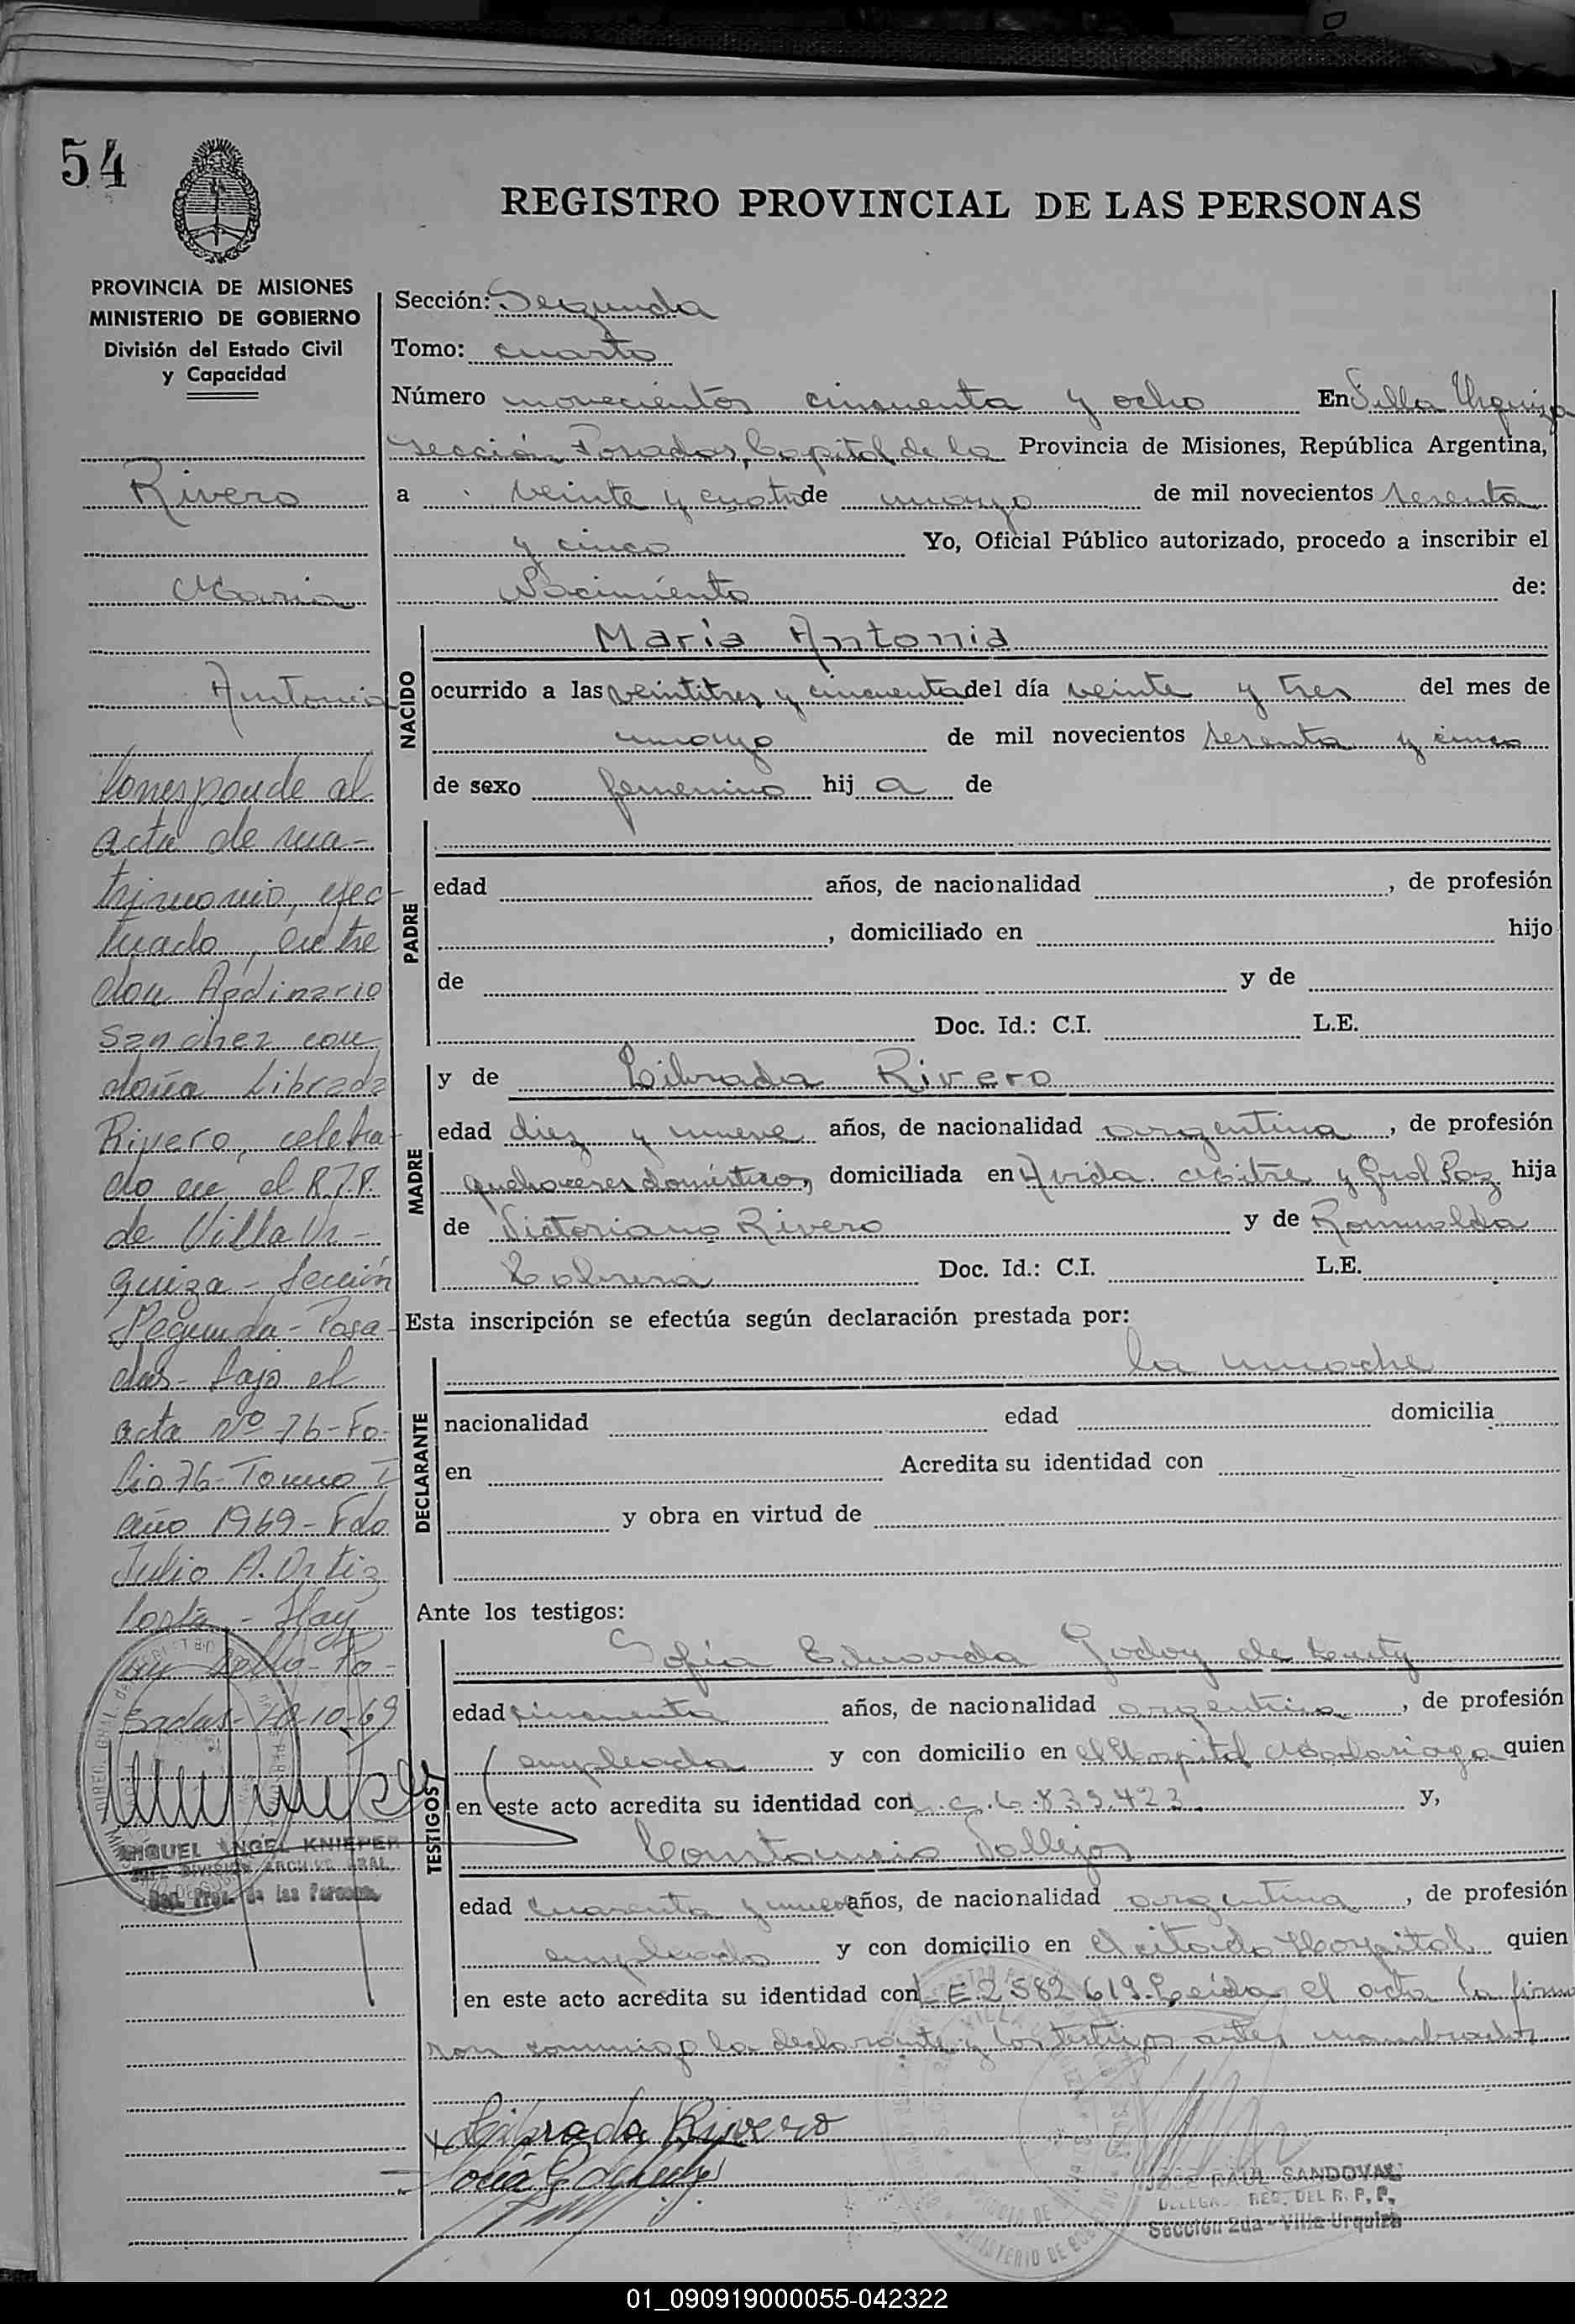 54
REGISTRO PROVINCIAL DE LAS PERSONAS
PROVINCIA DE MISIONES
MINISTERIO DE GOBIERNO
División del Estado Civil
y Capacidad
Rivero
Maria
Antonia
Corresponde al
acta de ma-
trimonio, efec-
tuado, entre
don Apdinario
Sanchez con
doña Librada
Rivero, celebra-
do en el R.P.P.
de Villa Ur-
quiza - Sección
Segunda - Posa-
das - bajo el
acta Nº 76 - Fo-
lio 76 - Tomo I
año 1969 - Fdo
Julio A. Ortiz
Costa - Hay
un sello - Po-
sadas - 10-69
MIGUEL ANGEL KNIEPER
JEFE DIVISION ARCHIVO GRAL.
Reg. Prov. de las Personas
Sección: Segunda
Tomo: cuarto
Número novecientos cincuenta y ocho En Villa Urquiza
sección Posadas, Capital de la Provincia de Misiones, República Argentina,
a veinte y cuatro de mayo de mil novecientos sesenta
y cinco Yo, Oficial Público autorizado, procedo a inscribir el
Nacimiento de:
NACIDO
María Antonia
ocurrido a las veintitres y cincuenta del día veinte y tres del mes de
mayo de mil novecientos sesenta y cinco
de sexo femenino hij a de
PADRE
edad años, de nacionalidad , de profesión
, domiciliado en hijo
de y de
Doc. Id.: C.I. L.E.
MADRE
y de Librada Rivero
edad diez y nueve años, de nacionalidad argentina, de profesión
quehaceres domésticos, domiciliada en Avida. Mitre y Gral Paz hija
de Victoriano Rivero y de Romualda
Cabrera Doc. Id.: C.I. L.E.
Esta inscripción se efectúa según declaración prestada por:
DECLARANTE
la madre
nacionalidad edad domicilia
en Acredita su identidad con
y obra en virtud de
Ante los testigos:
TESTIGOS
Sofia Eduarda Godoy de
edad cincuenta años, de nacionalidad argentina, de profesión
empleada y con domicilio en el Hospital Madariaga quien
en este acto acredita su identidad con L.C. 6.839.423 y,
Constancio Vallejos
edad cuarenta y nueve años, de nacionalidad argentina, de profesión
empleado y con domicilio en el citado Hospital quien
en este acto acredita su identidad con L E 2582619. Leída el acta la firma
ron conmigo la declarante y los testigos antes nombrados.
Librada Rivero
JOSE RAUL SANDOVAL
DELEGADO REG. DEL R. P. P.
Sección 2da - Villa Urquiza
01_090919000055-042322